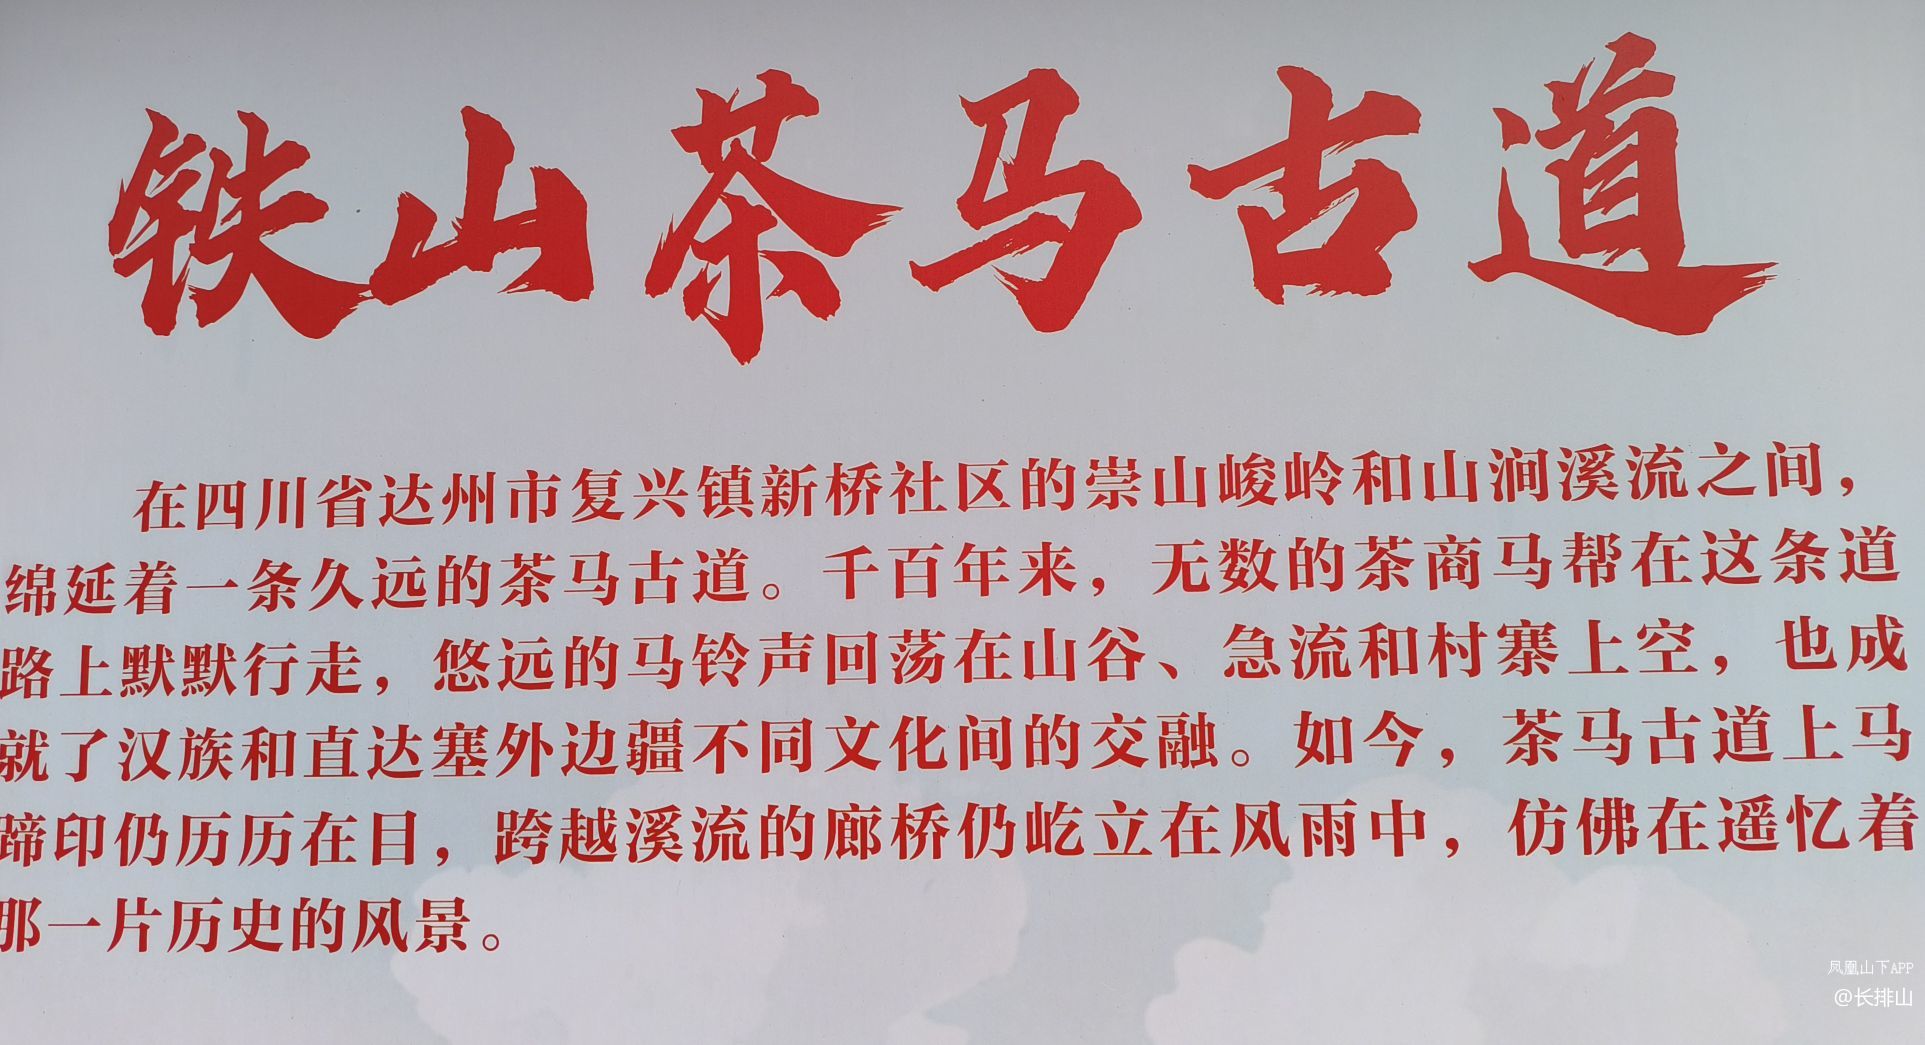 铁山茶马古道
在四川省达州市复兴镇新桥社区的崇山峻岭和山涧溪流之间，
绵延着一条久远的茶马古道。千百年来，无数的茶商马帮在这条道
路上默默行走，悠远的马铃声回荡在山谷、急流和村寨上空，也成
就了汉族和直达塞外边疆不同文化间的交融。如今，茶马古道上马
蹄印仍历历在目，跨越溪流的廊桥仍屹立在风雨中，仿佛在遥忆着
那一片历史的风景。
凤凰山下APP
@长排山